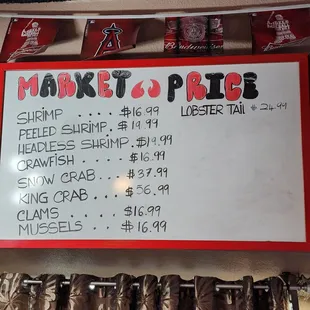 Budweiser
MARKET PRICE
SHRIMP .... $16.99
PEELED SHRIMP. $19.99
HEADLESS SHRIMP. $19.99
CRAWFISH .... $16.99
SNOW CRAB... $37.99
KING CRAB.... $56.99
CLAMS .... $16.99
MUSSELS .... $16.99
LOBSTER TAIL $24.99